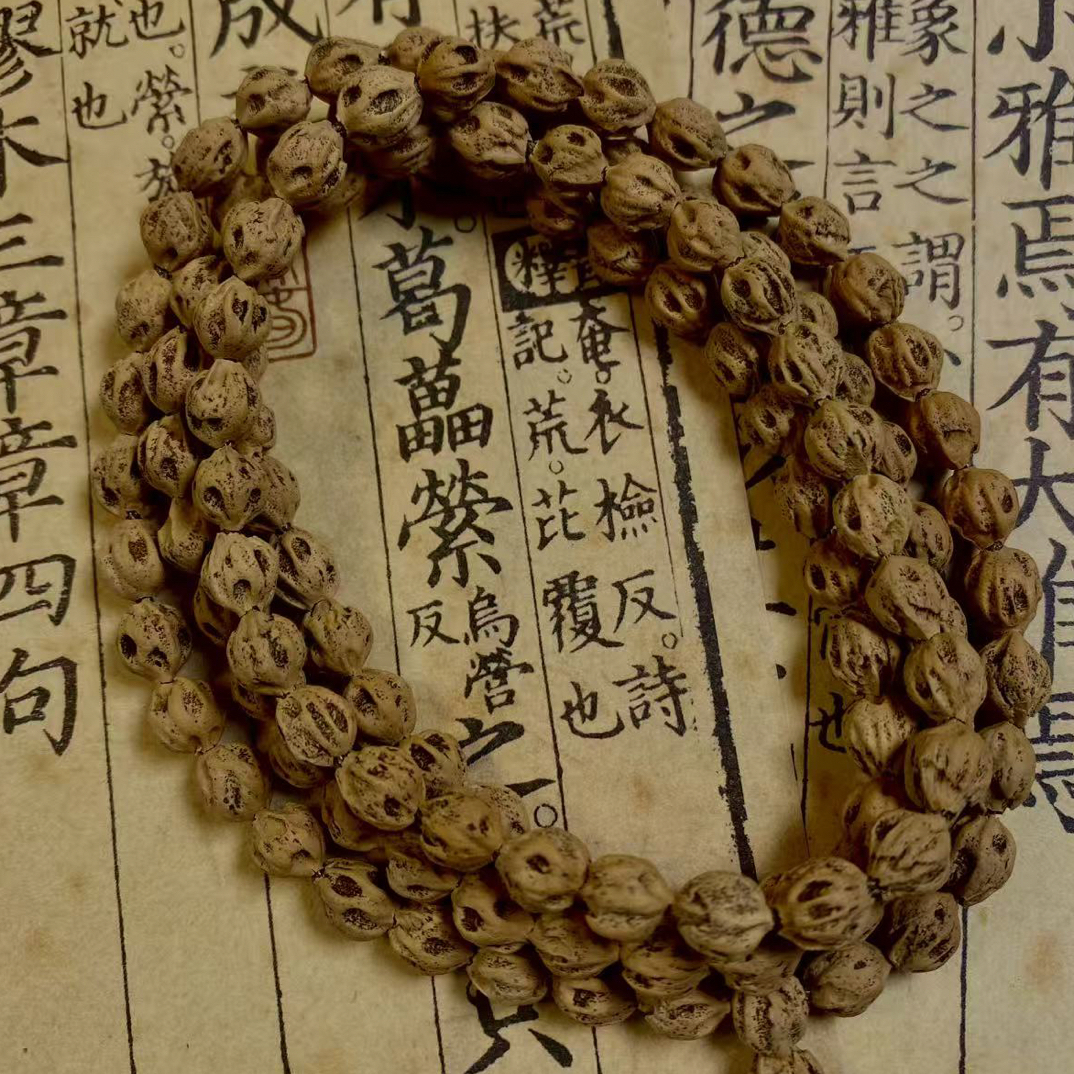 小雅焉有大雅焉
象之之謂。
雅則言
德之
也
奄。衣檢反。詩
釋記。荒。芘覆也
葛藟縈烏營反之。
荒
扶
成
也。縈。
就也
木三章章四句